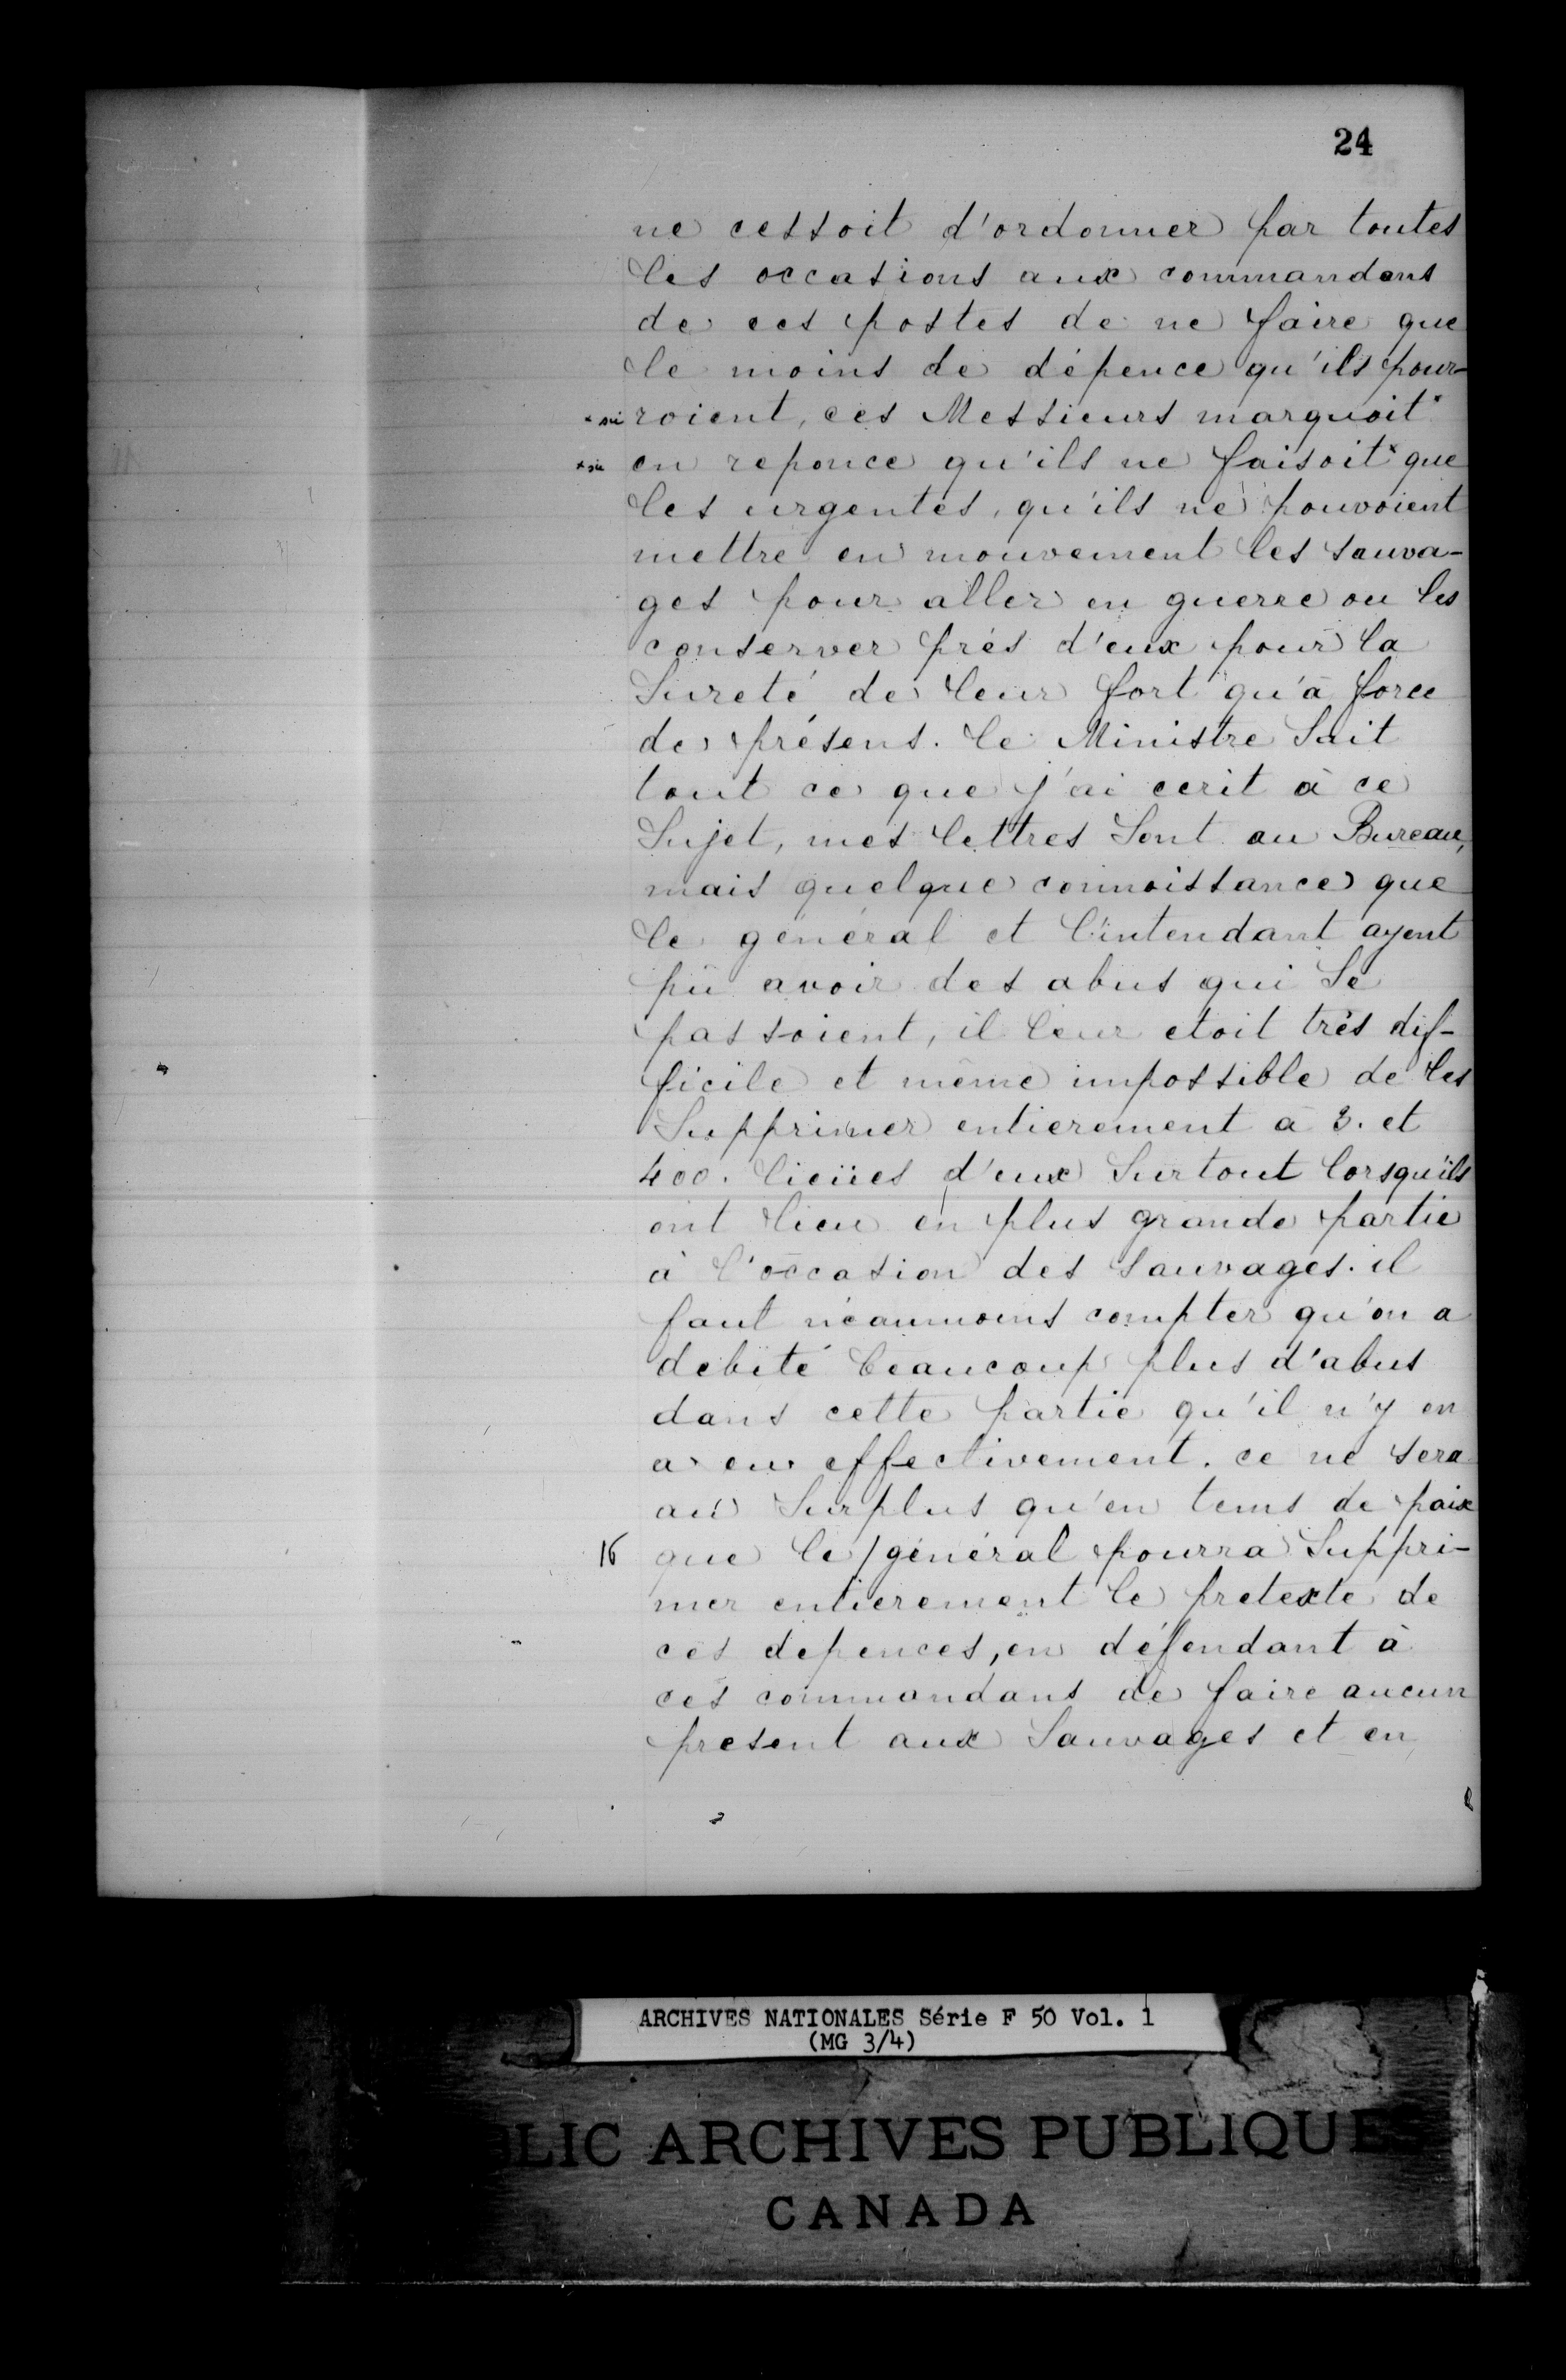 24
ne cessoit d'ordonner par toutes
les occasions aux commandans
de ces postes de ne faire que
le moins de dépence qu'ils pour-
* sic roient, ces Messieurs marquoit*
* sic en reponce qu'ils ne faisoit* que
les urgentes, qu'ils ne pouvoient
mettre en mouvement les sauva-
ges pour aller en guerre ou les
conserver prés d'eux pour la
Sureté de leur fort qu'à force
de présens. le Ministre Sait
tout ce que j'ai ecrit à ce
Sujet, mes lettres Sont au Bureau,
mais quelque connoissance que
le général et l'intendant ayent
pû avoir des abus qui Se
passoient, il leur etoit très dif-
ficile et même impossible de les
Supprimer entierement a 3. et
400. lieües d'eux Surtout lorsqu'ils
ont lieu en plus grande partie
à l'occasion des Sauvages. il
faut néanmoins compter qu'on a
debité beaucoup plus d'abus
dans cette partie qu'il n'y en
a eu effectivement. ce ne sera
au Surplus qu'en tems de paix
16 que le / général pourra Suppri-
mer entierement le pretexte de
ces depences, en défendant à
ces commandans de faire aucun
present aux Sauvages et en
ARCHIVES NATIONALES Série F 50 Vol. 1
(MG 3/4)
LIC ARCHIVES PUBLIQUES
CANADA